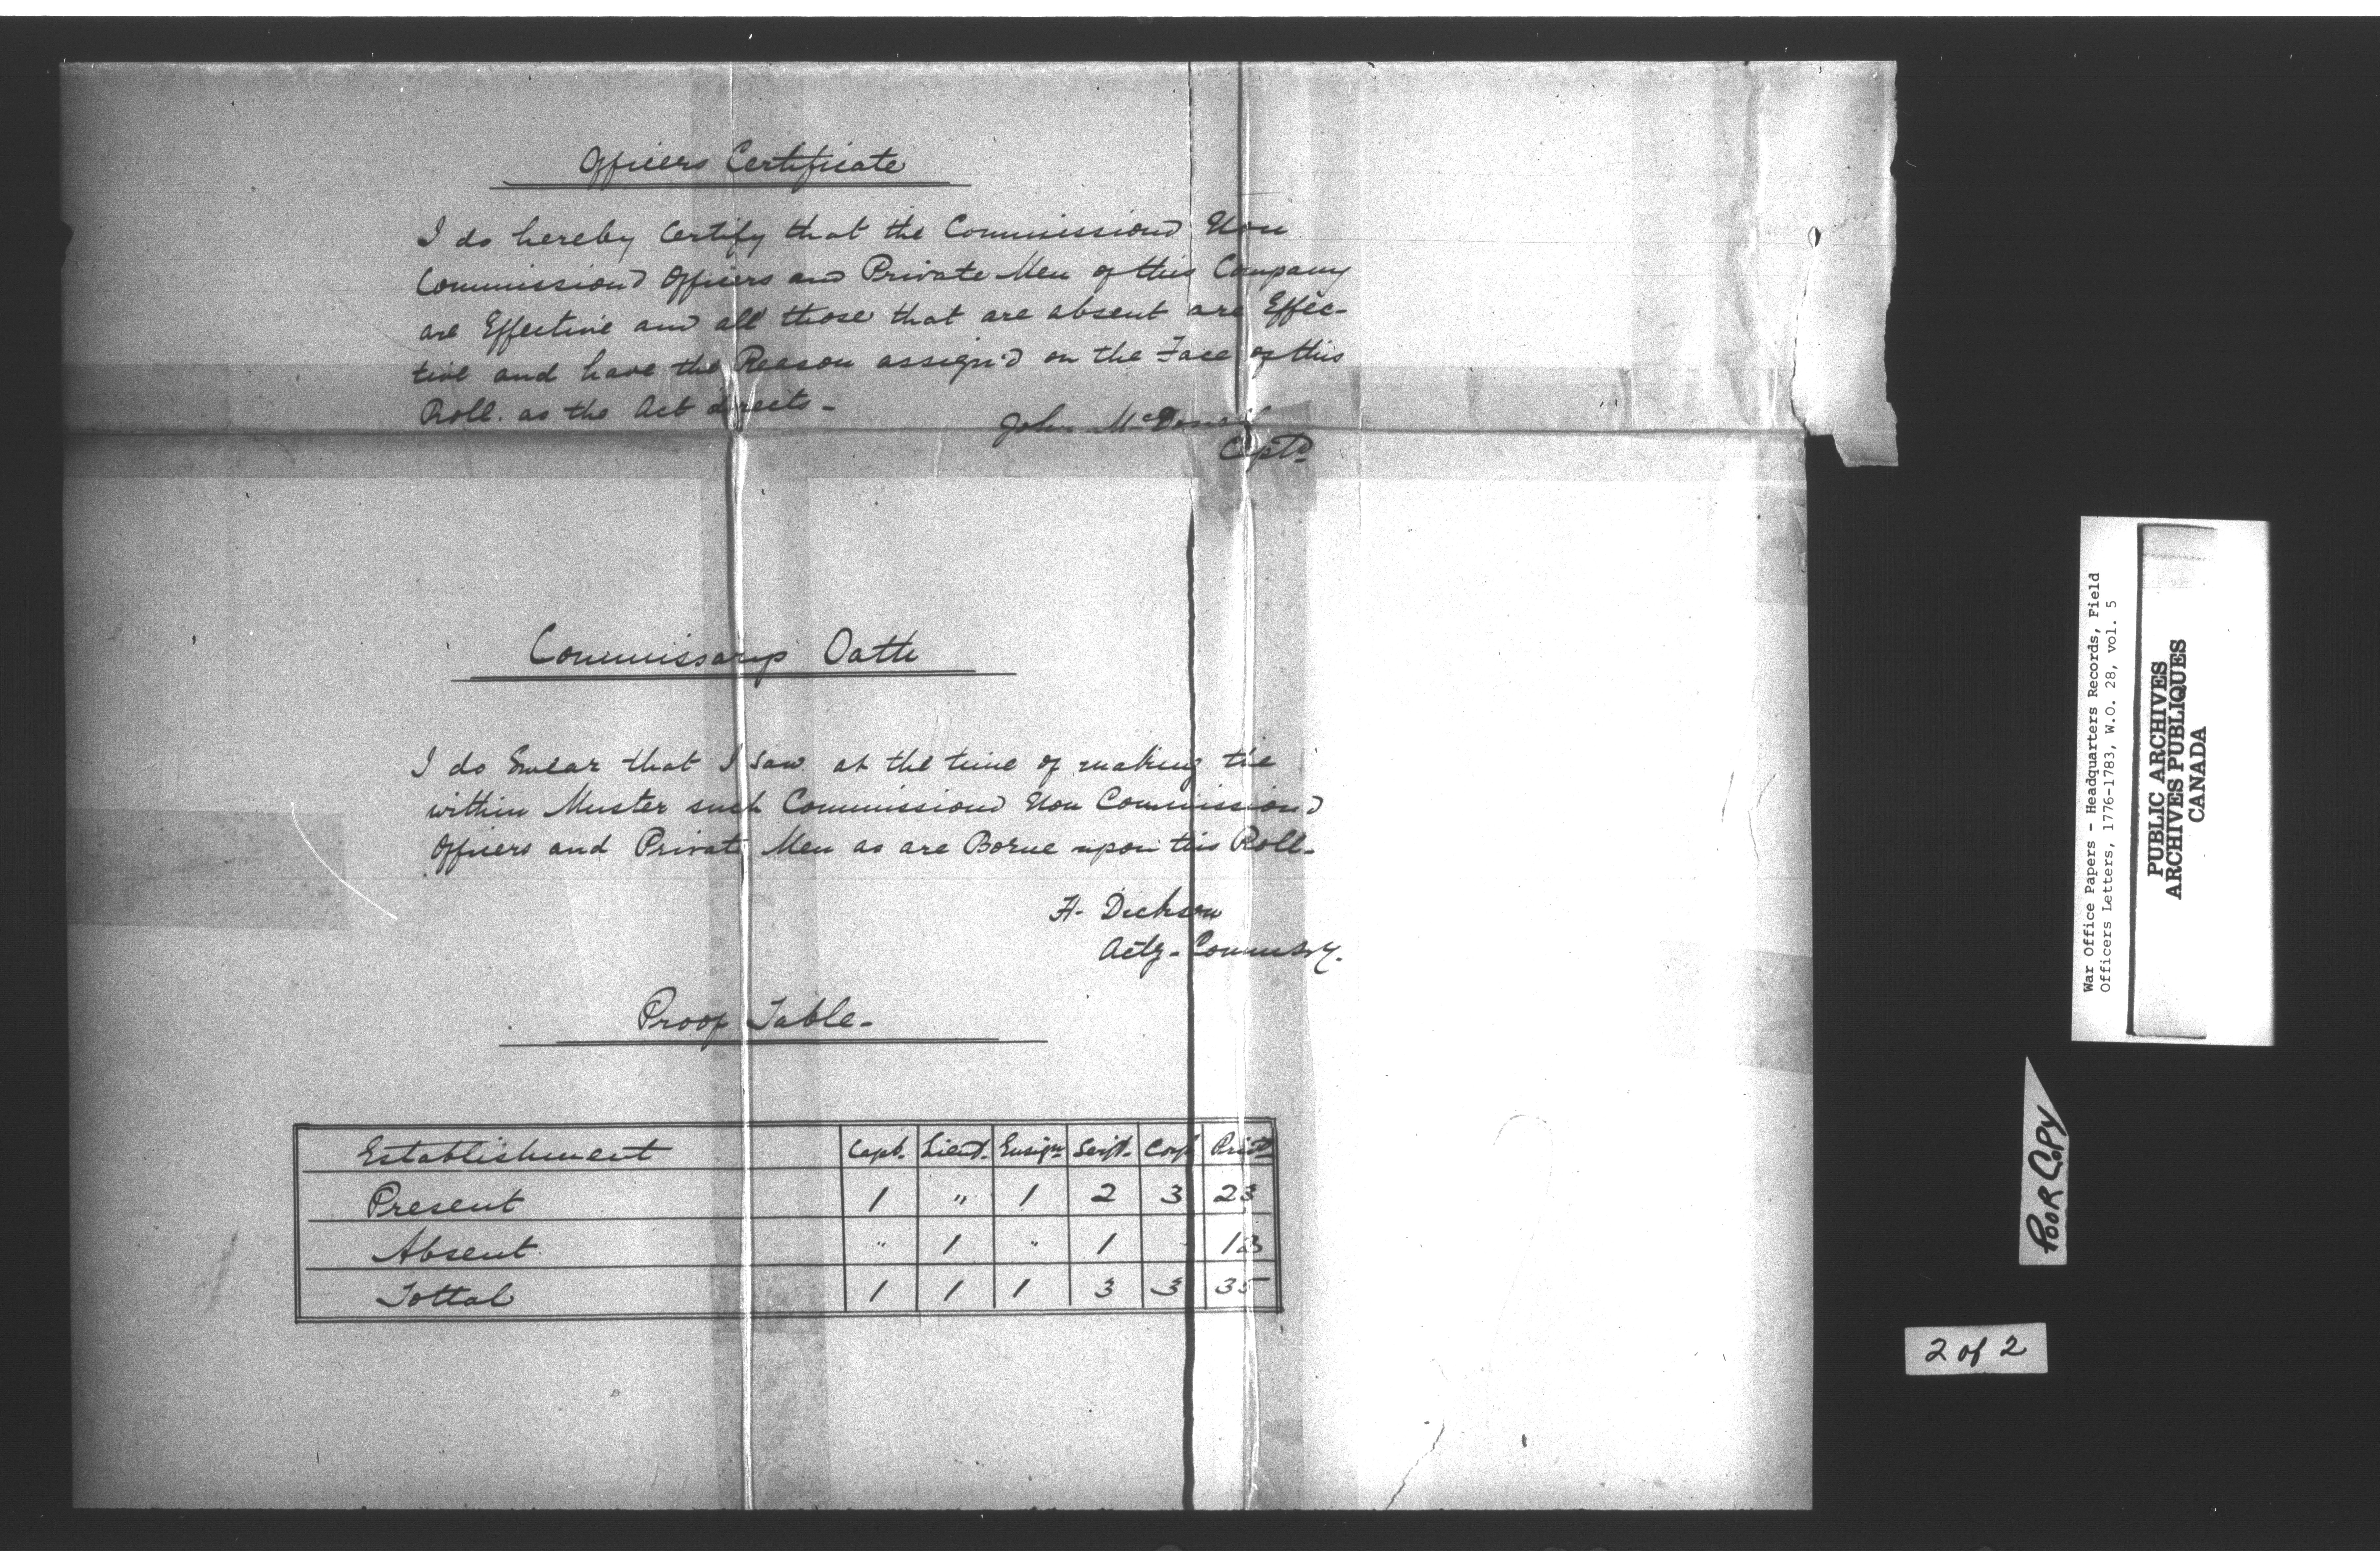 Officers Certificate
I do hereby Certify that the Commissiond Non
Commissiond Officers and Private Men of this Company
are Effective and all those that are absent are Effec-
tive and have the Reason assign'd on the Face of this
Roll. as the Act directs-
John
Captn
Commissarys Oath
I do Swear that I saw at the time of making the
within Muster such Commissiond Non Commissiond
Officers and Private Men as are Borne upon this Roll-
Dickson
Actg- Commsry.
Proof Table-
Establishment Capt. Lieut. Ensign Serjt. Corpl Privts
Present 1 " 1 2 3 23
Absent " 1 " 1
Tottal 1 1 1 3 3 35
War Office Papers - Headquarters Records, Field
Officers Letters, 1776-1783, W.O. 28, vol. 5
PUBLIC ARCHIVES
ARCHIVES PUBLIQUES
CANADA
POOR COPY
2 of 2